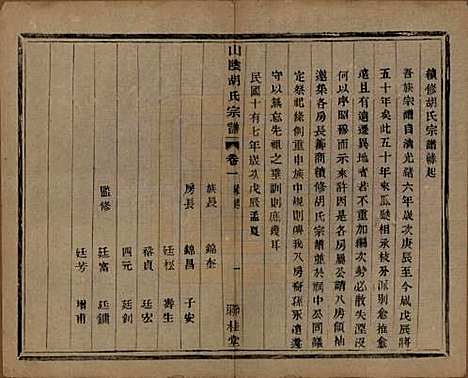 續修胡氏宗譜緣起
吾族宗譜自清光緒六年歲次庚辰至今歲戊辰將
五十年矣此五十年來瓜瓞相承枝分派別愈推愈
遠且有遷異地者若不重加編次勢必散失湮沒
何以序昭穆而示來許因是各房長公請八房領袖
邀集各房長籌商續修胡氏宗譜並於祠中公同議
定祭祀條例重申族中規則俾我八房裔孫永遠遵
守以無忘先祖之垂訓則庶幾耳
民國十有七年歲次戊辰孟夏
山陰胡氏宗譜 卷一 緣起 一 聯桂堂
族長 錦奎
房長 錦昌 子安
廷松 壽生
裕貞 廷宏
四元 廷釗
監修 廷富 廷鏞
廷芳 增甫